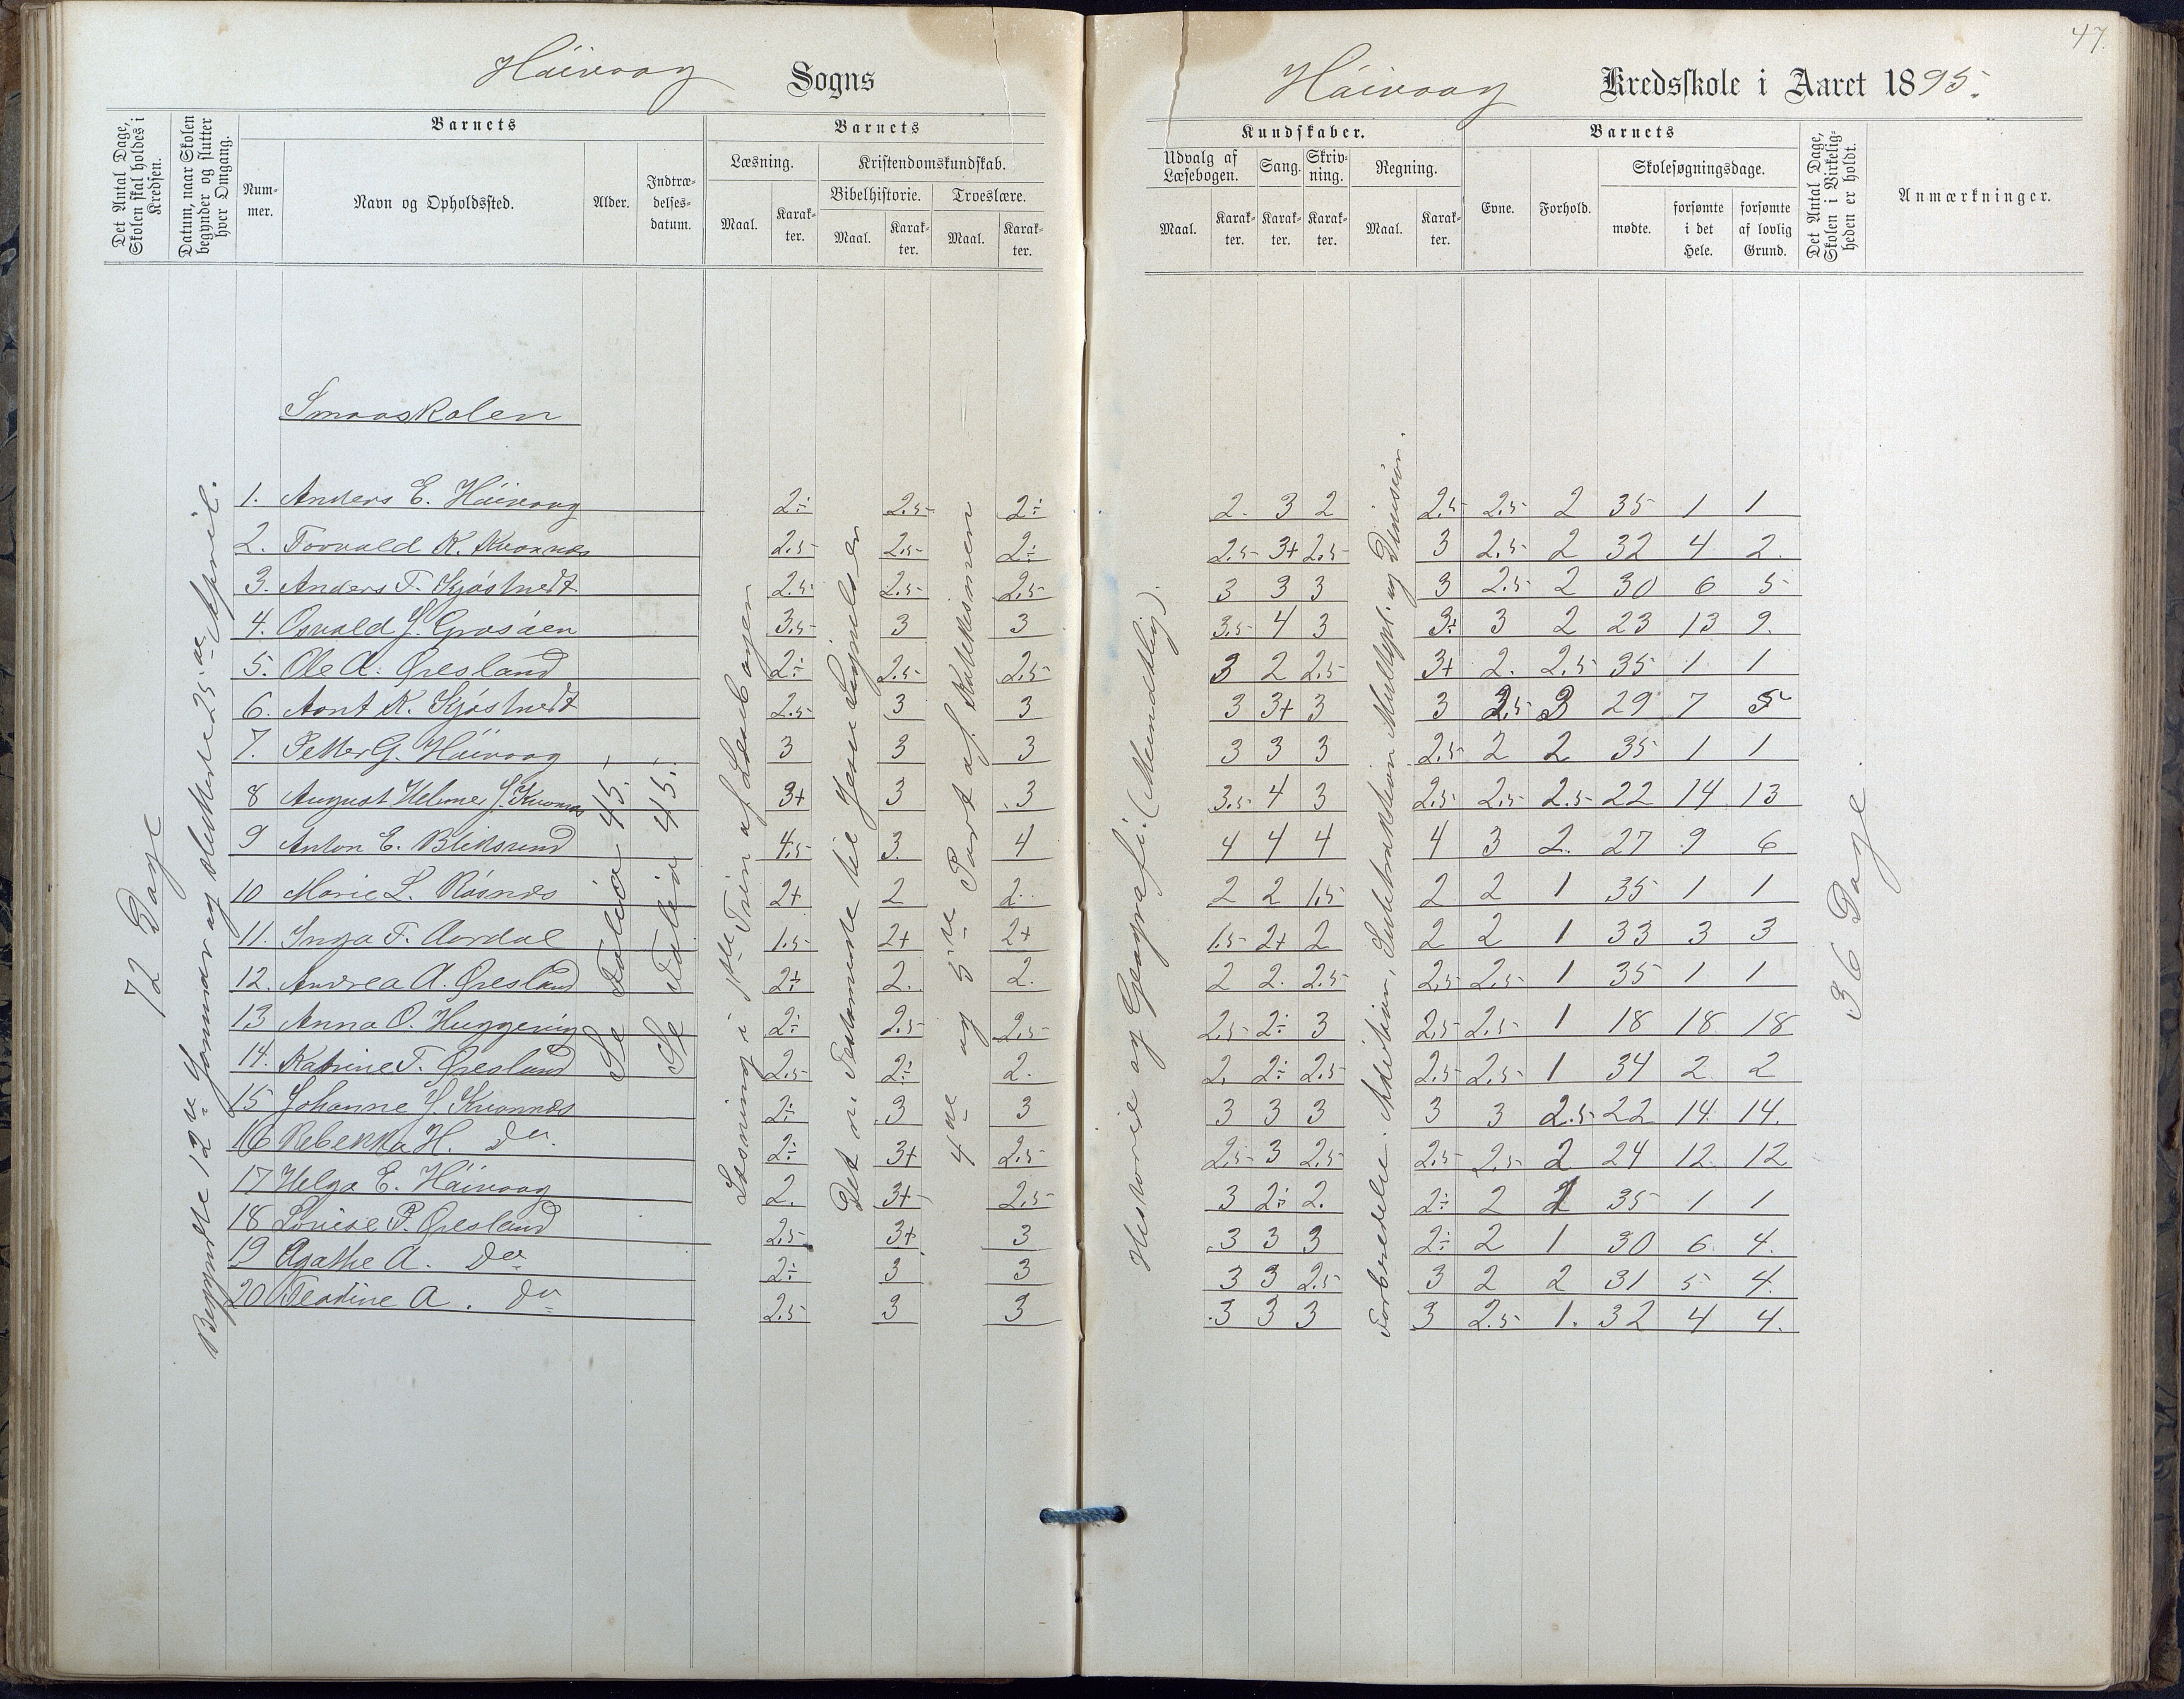 47.
Håivaag Sogns
Håivaag Kredsskole i Aaret 1895.
Det Antal Dage, Skolen skal holdes i Kredsen.
Datum, naar Skolen begynder og slutter hver Omgang.
Barnets
Num-mer.
Navn og Opholdssted.
Alder.
Indtræ-delses-datum.
Barnets
Læsning.
Kristendomskundskab.
Bibelhistorie.
Troeslære.
Maal. Karak-ter. Maal. Karak-ter. Maal. Karak-ter.
Kundskaber.
Udvalg af Læsebogen. Sang. Skriv-ning. Regning.
Maal. Karak-ter. Karak-ter. Karak-ter. Maal. Karak-ter.
Barnets
Evne. Forhold.
Skolesøgningsdage.
mødte. forsømte i det Hele. forsømte af lovlig Grund.
Det Antal Dage, Skolen i Virkelig-heden er holdt.
Anmærkninger.
72 Dage
Begyndte 12te Januar og sluttede 25de April.
Smaaskolen
Se Folio 45.
Se Folio 45.
Læsning i 1ste Trin af Læsebogen
Det n. Testamente til Jesu Lignelser
4de og 5te Part af Katekismen
Historie og Geografi: (Mundtlig).
Forberedelse. Addition, Subtraktion Multipl. og Division.
36 Dage.
1. Anders E. Håivaag 2÷ 2.5 2÷ 2. 3 2 2.5 2.5 2 35 1 1
2. Torvald K. Kvannes 2.5 2.5 2÷ 2.5 3+ 2.5 3 2.5 2 32 4 2.
3. Anders T. Kjøstvedt 2.5 2.5 2.5 3 3 3 3 2.5 2 30 6 5
4. Osvald J. Grosåen 3.5 3 3 3.5 4 3 3÷ 3 2 23 13 9.
5. Ole A. Øresland 2÷ 2.5 2.5 3 2 2.5 3+ 2. 2.5 35 1 1
6. Aant K. Kjøstvedt 2.5 3 3 3 3+ 3 3 2.5 3 29 7 5
7. Petter G. Håivaag 3 3 3 3 3 3 2.5 2 2 35 1 1
8 August Helmer J. Kvannes 3+ 3 3 3.5 4 3 2.5 2.5 2.5 22 14 13
9 Anton E. Bliksund 4.5 3. 4 4 4 4 4 3 2. 27 9 6
10 Marie L. Røsnes 2+ 2 2. 2 2 1.5 2 2 1 35 1 1
11. Inga T. Aardal 1.5 2+ 2+ 1.5 2+ 2 2 2 1 33 3 3
12. Andrea A. Øresland 2÷ 2. 2. 2 2. 2.5 2.5 2.5 1 35 1 1
13 Anna O. Huggenig 2÷ 2.5 2.5 2.5 2÷ 3 2.5 2.5 1 18 18 18
14. Katrine T. Øresland 2.5 2÷ 2. 2. 2÷ 2.5 2.5 2.5 1 34 2 2
15 Johanne J. Kvannes 2÷ 3 3 3 3 3 3 3 2.5 22 14. 14.
16 Rebekka H. do. 2÷ 3+ 2.5 2.5 3 2.5 2.5 2.5 2 24 12. 12
17 Helga E. Håivaag 2. 3+ 2.5 3 2÷ 2. 2÷ 2 35 1 1
18 Lovise P. Øresland 2.5 3+ 3 3 3 3 2÷ 2 1 30 6. 4.
19 Agathe A. do 2÷ 3 3 3 3 2.5 3 2 2 31 5 4.
20 Teodine A. do 2.5 3 3 3 3 3 3 2.5 1. 32 4 4.